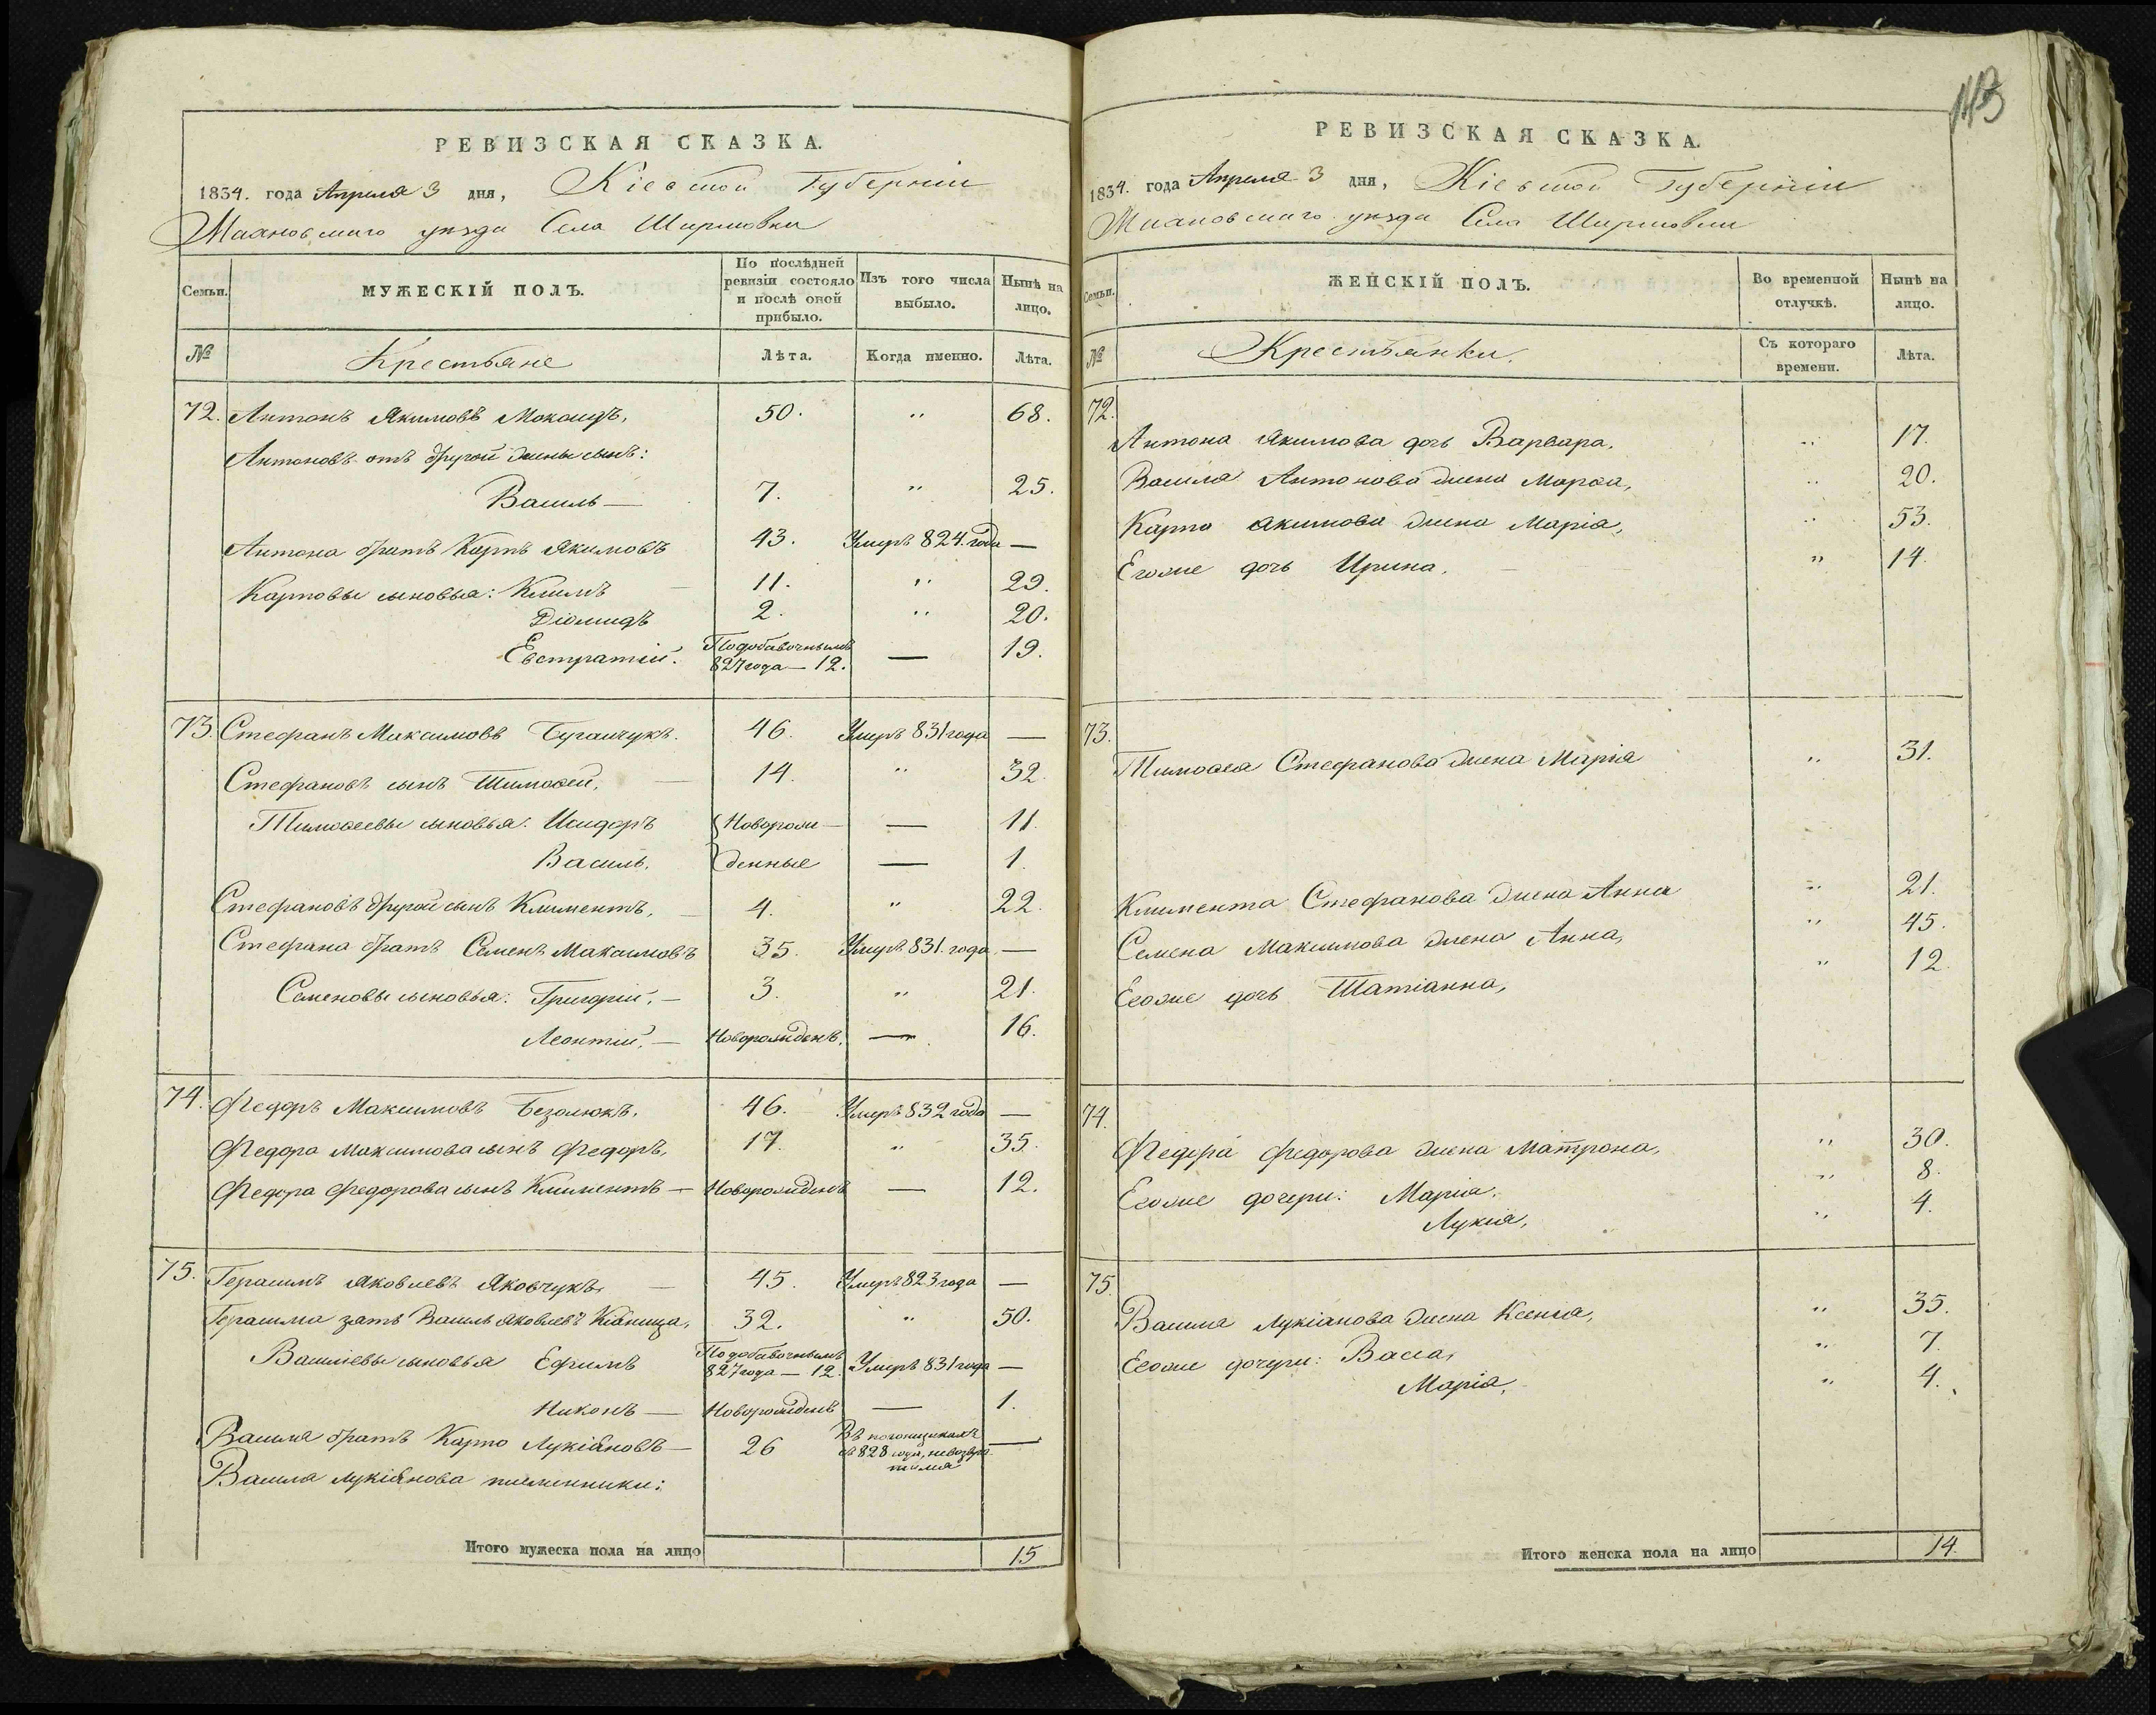 РЕВИЗСКАЯ СКАЗКА.
1834. года Апреля 3 дня, Кіевской Губерніи
уезда Села Ширмовки
Семьи. МУЖЕСКІЙ ПОЛЪ. По послѣдней ревизіи состояло и послѣ оной прибыло. Изъ того числа выбыло. Нынѣ на лицо.
№ Крестьяне Лѣта. Когда именно. Лѣта.
72. Антонъ Якимовъ 50. " 68.
Антоновъ отъ другой жены сынъ:
Василь — 7. " 25.
Антона братъ Карпъ Якимовъ 43. Умеръ 824. года —
Карповы сыновья: Климъ — 11. " 29.
Діомидъ 2. " 20.
Евстратій. По добавочнымъ 827 года — 12. — 19.
73. Стефанъ Максимовъ 46. Умеръ 831 года —
Стефановъ сынъ Тимофей, — 14. " 32.
Тимофеевы сыновья: Исидоръ Новорож- — 11.
Василь, денные — 1.
Стефановъ другой сынъ Климентъ, — 4. " 22.
Стефана братъ Семенъ Максимовъ 35. Умеръ 831. года —
Семеновы сыновья: Григорій, — 3. " 21.
Леонтій, — Новорожденъ, — 16.
74. Федоръ Максимовъ Безолюкъ, 46. Умеръ 832 года —
Федора Максимова сынъ Федоръ, 17. " 35.
Федора Федорова сынъ Климентъ — Новорожденъ — 12.
75. Герасимъ Яковлевъ Яковчукъ, — 45. Умеръ 823 года —
Герасима зять Василь Яковлевъ 32. " 50.
Василіевы сыновья Ефимъ По добавочнымъ 827 года — 12. Умеръ 831 года —
Никонъ — Новорожденъ — 1.
Василя братъ Карпо Лукіяновъ — 26 Въ погонщикахъ съ 828 года, невозвратился —
Василя Лукіянова племенники:
Итого мужеска пола на лицо 15
РЕВИЗСКАЯ СКАЗКА.
1834. года Апреля 3 дня, Кіевской Губерніи
уезда Села Ширмовки
Семьи. ЖЕНСКІЙ ПОЛЪ. Во временной отлучкѣ. Нынѣ на лицо.
№ Крестьянки. Съ котораго времени. Лѣта.
72.
Антона Якимова дочь Варвара, " 17.
Василя Антонова жена Марфа, " 20.
Карпа Якимова жена Марія, " 53.
Егоже дочь Ирина, " 14.
73.
Тимофея Стефанова жена Марія " 31.
Климента Стефанова жена Анна " 21.
Семена Максимова жена Анна, " 45.
Егоже дочь Татіанна, " 12.
74.
Федора Федорова жена Матрона, " 30.
Егоже дочери: Марія, " 8.
Лукія, " 4.
75.
Василя Лукіанова жена Ксенія, " 35.
Егоже дочери: Васса, " 7.
Марія, " 4.
Итого женска пола на лицо 14.